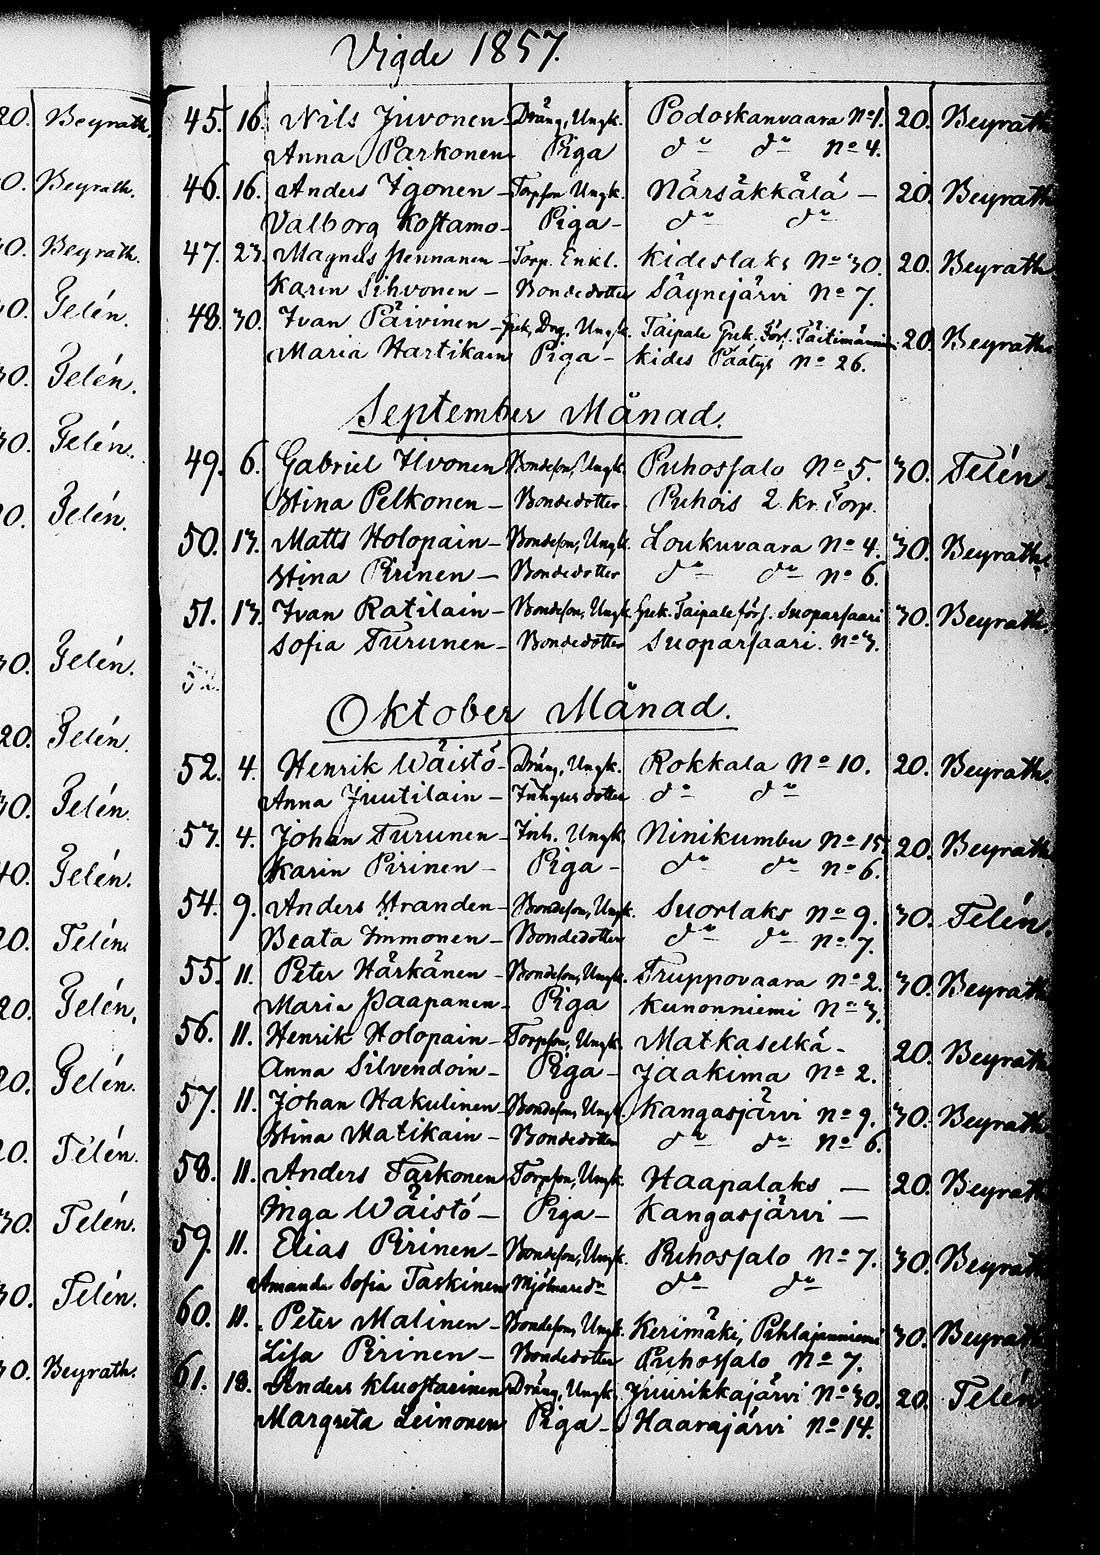 Vigde 1857.
20. Beyrath.
0. Beyrath.
0. Beyrath.
0. Telén.
30. Telén.
30. Telén.
0. Telén.
30. Telén.
20. Telén.
30. Telén.
40. Telén.
20. Telén.
20. Telén.
20. Telén.
20. Telén.
30. Telén.
30. Telén.
30. Beyrath.
45. 16. Nils Juvonen Dräng, Ungk. Podoskanvaara No 1. 20. Beyrath
Anna Parkonen Piga do do No 4.
46. 16. Anders Igonen - Torpson Ungk. Närsäkkälä - 20. Beyrath
Valborg Kostamo - Piga - do do
47. 23. Magnus Pennanen - Torp. Enkl. Kideslaks No 30. 20. Beyrath
Karin Sihvonen - Bondedotter Sägnejärvi No 7.
48. 30. Ivan Päivinen - Grek. Dng. Ungk. Taipale Grek. Förs. 20. Beyrath
Maria Hartikain Piga - Kides Päätys No 26.
September Månad.
49. 6. Gabriel Ilvonen Bondeson, Ungk. Puhossalo No 5. 30. Telén
Stina Pelkonen - Bondedotter Puhois 2 Kr. Torp.
50. 13. Matts Holopain - Bondeson, Ungk. Loukuvaara No 4. 30. Beyrath
Stina Pirinen - Bondedotter do do No 6.
51. 13. Ivan Ratilain - Bondeson, Ungk. Grek. Taipale förs. Suoparsaari 30. Beyrath.
Sofia Turunen - Bondedotter Suoparsaari. No 3.
52.
Oktober Månad.
52. 4. Henrik Wäistö - Dräng, Ungk. Rokkala No 10. 20. Beyrath.
Anna Juutilain - Inhyses dotter do do
53. 4. Johan Turunen - Inh. Ungk. Ninikumbu No 15. 20. Beyrath
Karin Pirinen - Piga - do do No 6.
54. 9. Anders Stranden - Bondeson, Ungk. Suorlaks No 9. 30. Telén.
Beata Immonen - Bondedotter do do No 7.
55. 11. Peter Härkänen - Bondeson, Ungk. Truppovaara No 2. 30. Beyrath
Maria Paapanen - Piga Kunonniemi No 3.
56. 11. Henrik Holopain - Torpson, Ungk. Matkaselkä - 20. Beyrath
Anna Silvendoin - Piga - Jaakima No 2.
57. 11. Johan Hakulinen - Bondeson, Ungk. Kangasjärvi No 9. 30. Beyrath
Stina Matikain - Bondedotter do do No 6.
58. 11. Anders Tarkonen Torpson, Ungk. Haapalaks - 20. Beyrath
Inga Wäistö - Piga - Kangasjärvi -
59. 11. Elias Pirinen - Bondeson, Ungk. Puhossalo No 7. 30. Beyrath
Amanda Sofia Taskinen Mjölnaredr do do
60. 11. Peter Malinen - Bondeson, Ungk. Kerimäki, Pihlajanniemi 30. Beyrath
Lisa Pirinen - Bondedotter Puhossalo No 7.
61. 18. Anders Kluostarinen Dräng, Ungk. Juurikkajärvi No 30. 20. Telén
Margreta Leinonen Piga - Haarajärvi No 14.